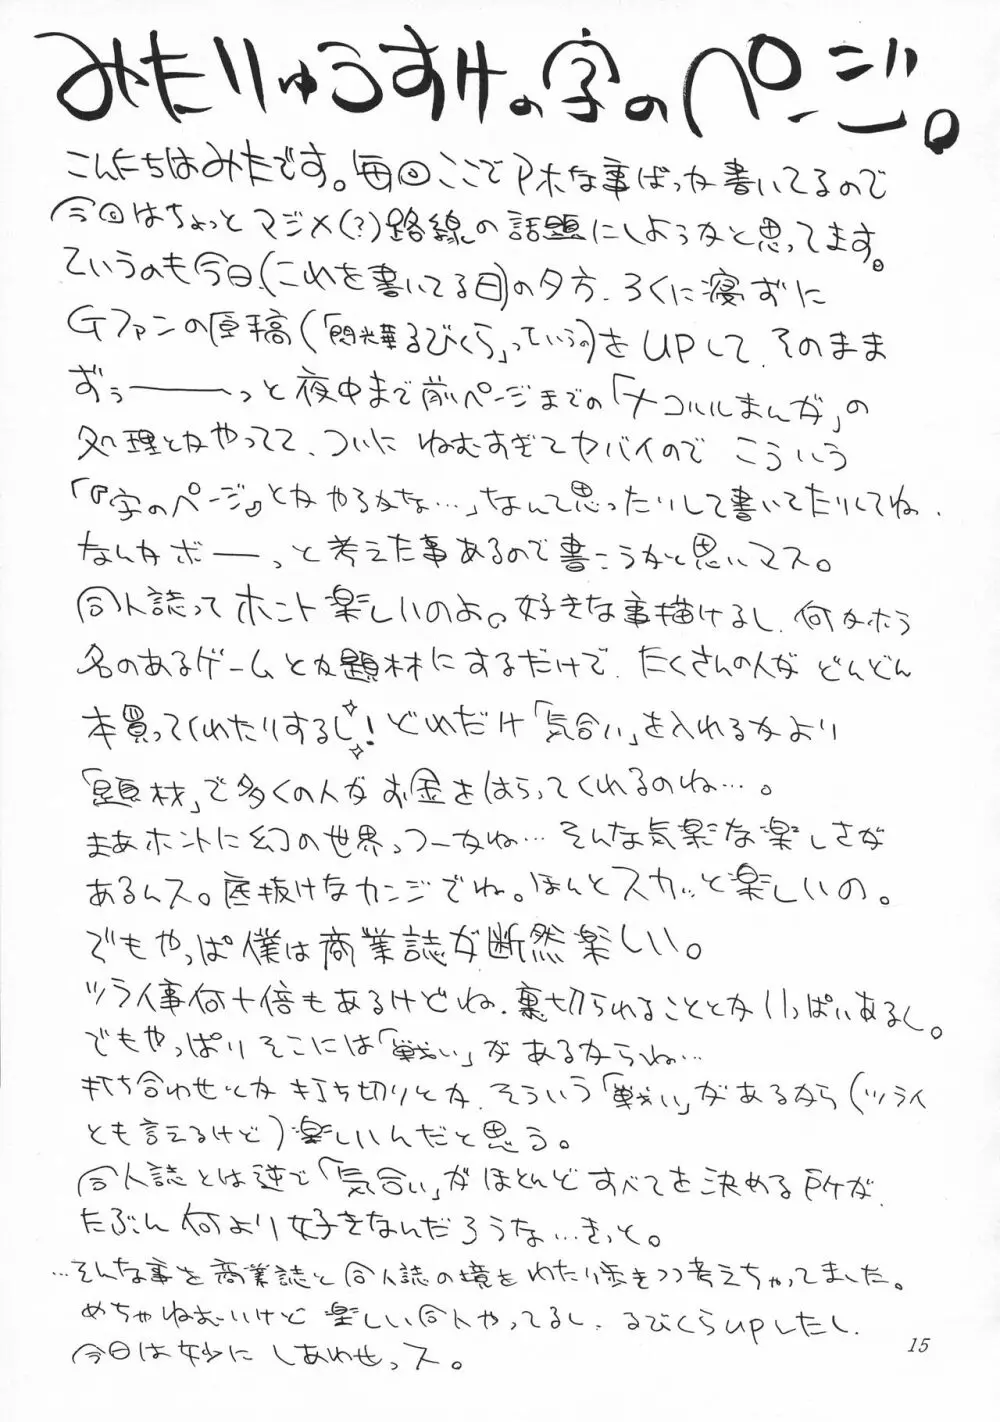 みたりゅうすけの字のページ。
こんにちはみたです。毎回ここでアホな事ばっか書いてるので
今回はちょっとマジメ(?)路線の話題にしようかと思ってます。
ていうのも今日(これを書いてる日)の夕方、ろくに寝ずに
Gファンの原稿(「閃光華るびくら」っていうの)をUPして、そのまま
ずぅーーーっと夜中まで前ページまでの「ナコルルまんが」の
処理とかやってて、ついにねむすぎてヤバイので こういう
「『字のページ』とかやるかな…」なんて思ったりして書いてたりしてね、
なんかボーーっと考えた事あるので書こうかと思いマス。
同人誌ってホント楽しいのよ。好きな事描けるし、何かホラ
名のあるゲームとか題材にするだけで、たくさんの人が どんどん
本買ってくれたりするし! どれだけ「気合い」を入れるかより
「題材」で多くの人がお金をはらってくれるのね…。
まあホントに幻の世界っつーかね…そんな気楽な楽しさが
あるんス。底抜けなカンジでね。ほんとスカッと楽しいの。
でもやっぱ僕は商業誌が断然楽しい。
ツライ事何十倍もあるけどね、裏切られることとかいっぱいあるし。
でもやっぱりそこには「戦い」があるからね…
打ち合わせとか打ち切りとか、そういう「戦い」があるから(ツライ
とも言えるけど)楽しいんだと思う。
同人誌とは逆で「気合い」がほとんどすべてを決める所が、
たぶん何より好きなんだろうな…きっと。
…そんな事を商業誌と同人誌の境をわたり歩きつつ考えちゃってました。
めちゃねむいけど 楽しい同人やってるし、るびくらUPしたし、
今日は妙に しあわせっス。
15